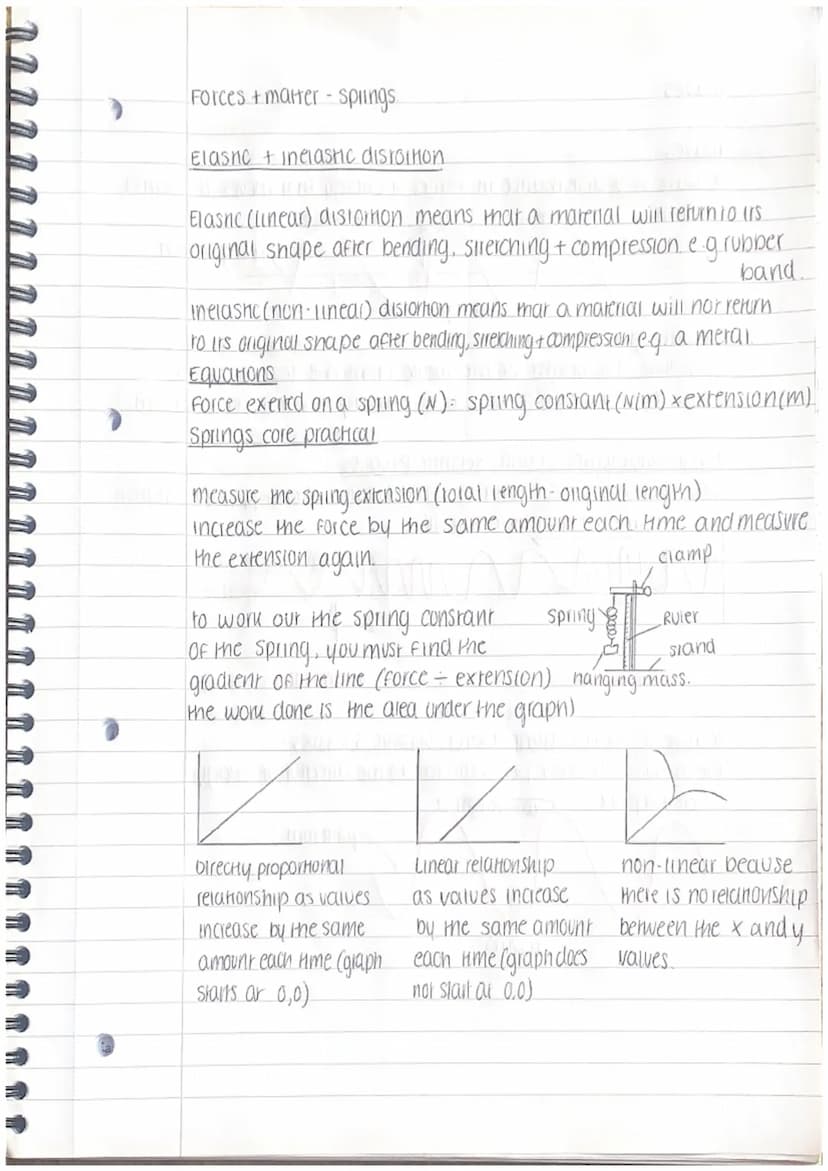 Forces + matter - springs
Elastic + inelastic distortion
Elastic (linear) distortion means that a material will return to its
original shape after bending, stretching + compression e.g rubber
band.
inelastic (non-linear) distortion means that a material will not return
to its original shape after bending, stretching + compression e.g. a metal
Equations
Force exerted on a spring (N) = spring constant (N/m) × extension (m)
Springs core practical
measure the spring extension (total length - original length)
increase the force by the same amount each time and measure
the extension again.
clamp
to work out the spring constant
spring
Ruler
of the spring, you must find the
stand
gradient of the line (force ÷ extension)
hanging mass.
the work done is the area under the graph)
Directly proportional
relationship as values
increase by the same
amount each time (graph
starts at 0,0)
Linear relationship
as values increase
by the same amount
each time (graph does
not start at 0.0)
non-linear beause
there is no relationship
between the x and y
values.